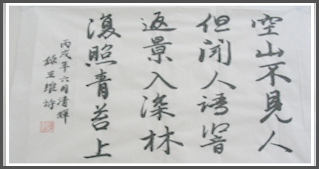 空山不見人
但聞人語響
返景入深林
復照青苔上
丙戌年六月清輝
錄王維詩